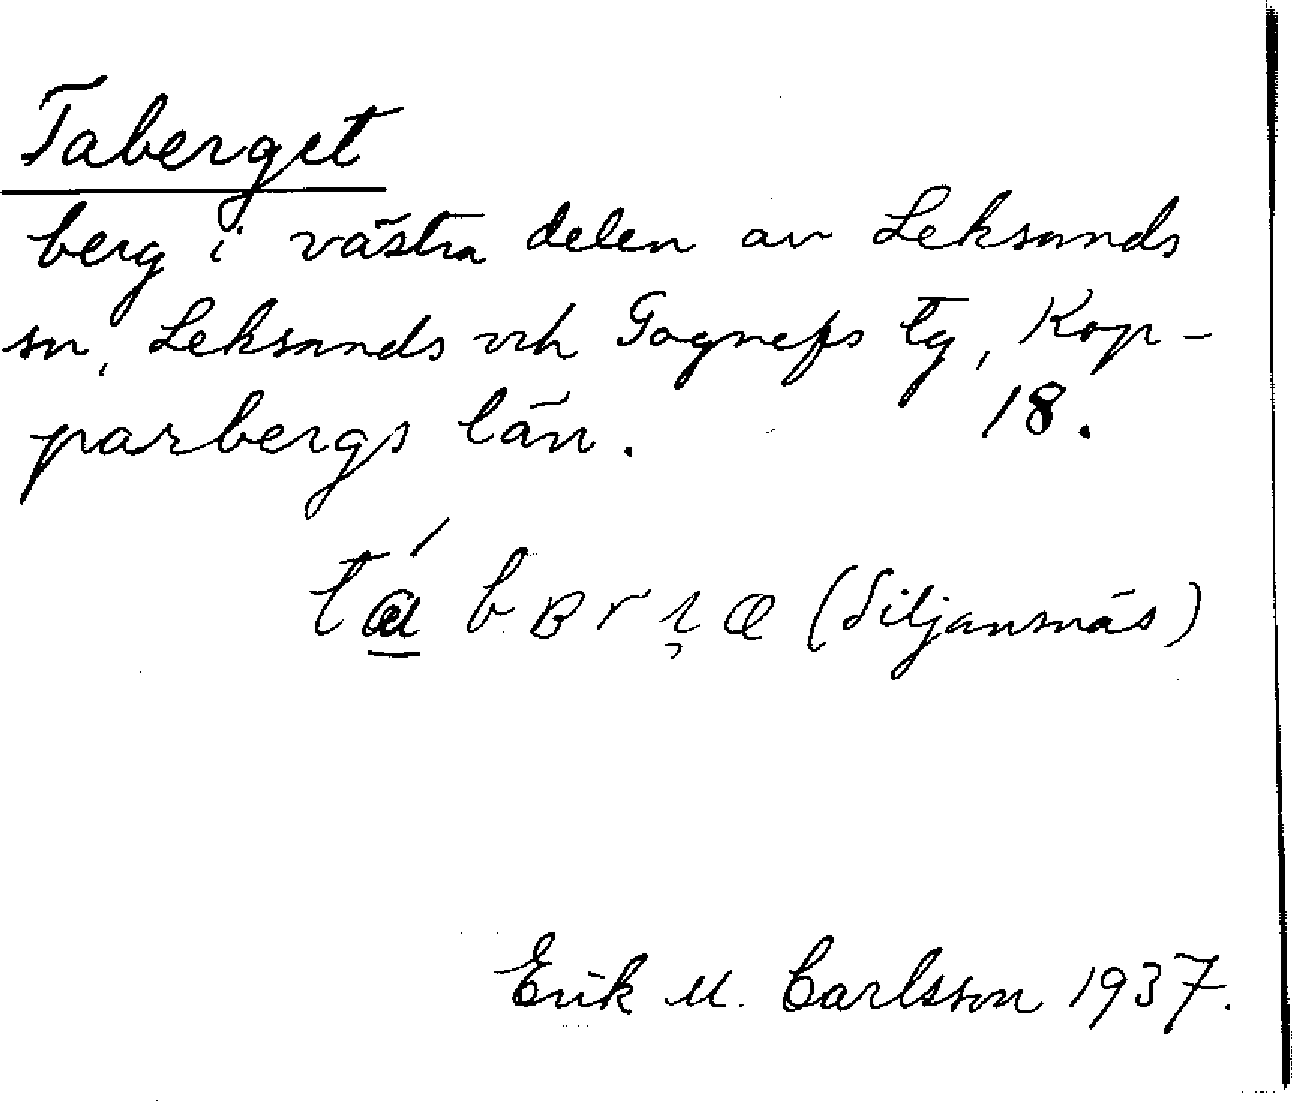 Taberget
berg i västra delen av Leksands
sn, Leksands och Gagnefs tg, Kop-
parbergs län. 18.
(Siljansnäs)
Erik M. Carlsson 1937.